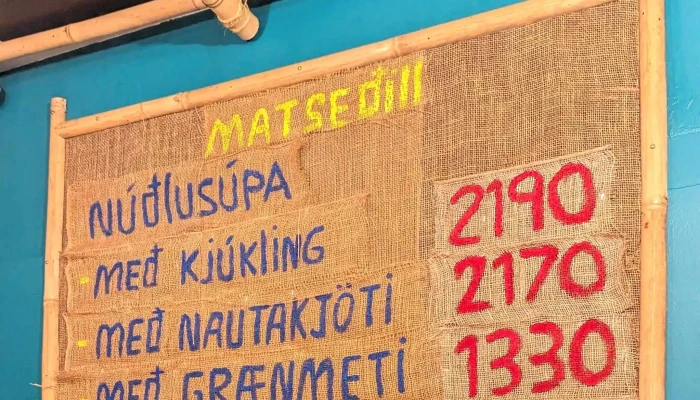 MATSEðill
NÚðlUSÚPA
- MEÐ KJÚKLING 2190
- MEÐ NAUTAKJÖTi 2170
MEÐ GRÆNMETi 1330